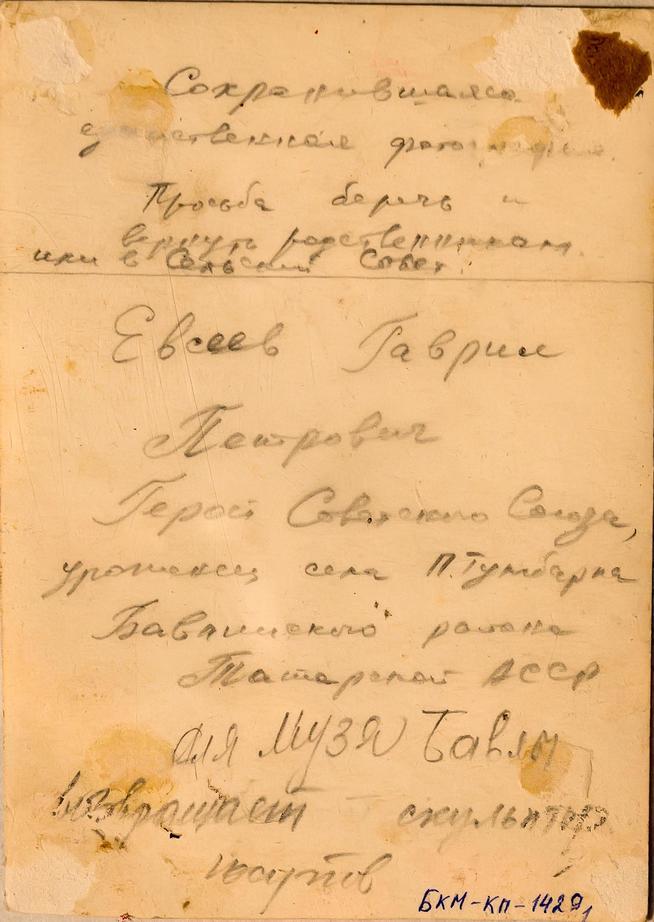 Сохранившаяся
единственная фотография.
Просьба беречь и
вернуть родственникам
или в Сельский Совет.
Евсеев Гаврил
Петрович
Герой Советского Союза,
уроженец села П.Тумбарла
Бавлинского района
Татарской АССР
для МУЗЯ Бавлы
возвращает скульптор
БКМ-КП-1429/1